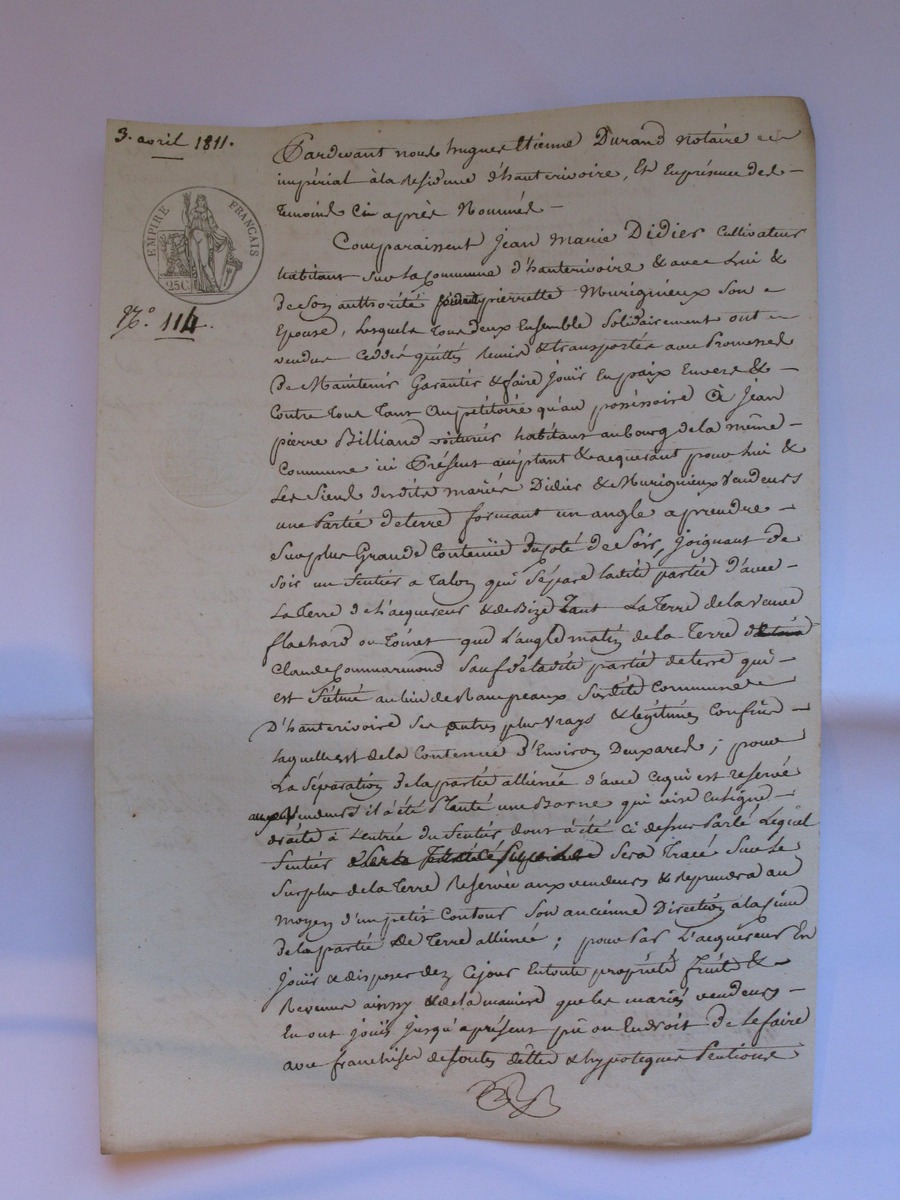 3. avril 1811.
EMPIRE FRANÇAIS
25 C.
N.° 114.
Pardevant nous hugues Etienne Durand Notaire
impérial à la Residence d'hauterivoire, Et En présence des
temoins Ci après Nommés
Comparaissent Jean Marie Didier Cultivateur
habitant sur La Commune d'hauterivoire & avec Lui &
de Son authorité pierrette Murigneux Son
Epouse, Lesquels Tous deux Ensemble Solidairement ont
vendus Ceddés quittés Remis & transportés avec Promesses
De Maintenir Garantir & faire Jouir En paix Envers &
Contre Tous Tant Au pétitoire qu'au posséssoire à Jean
pierre Billiand voiturier habitant au bourg de la même
Commune ici Présent acceptant & acquerant pour Lui &
Les Siens desdits mariés Didier & Murigneux Vendeurs
une Partie de terre formant un angle a prendre
Sur plus Grande Contenüe du Coté de Soir, Joignant de
Soir un Sentier a Talon qui Sépare ladite partie d'avec
La Terre de L'acquereur & de Bize Tant La Terre de la veuve
flachard ou Toinet que L'angle matin de la Terre de
Claude Commarmond Sauf de ladite partie de terre qui
est Située au lieu de Sur dite Commune
D'hauterivoire Ses autres plus vrays & légitimes Confins
Laquelle est de la Contenue D'Environ Deux ares ; pour
La Séparation de la partie alliénée d'avec Ce qui est reservé
aux Vendeurs il à été Planté une Borne qui vise En ligne
droite à L'entrée du Sentier dont à été ci dessus Parlé Lequel
Sentier Sera Tracé Sur Le
Surplus de la Terre Reservée aux vendeurs & Reprendra au
moyen d'un petit Contour Son ancienne Direction à la Cime
de la partie de Terre alliénée ; pour Par L'acquéreur En
Jouir & disposer dez Ce jour En toute propriété fruits &
Revenus ainsy & de la maniere que les mariés vendeurs
En ont Jouïs Jusqu'a présent pû ou En droit de Le faire
avec franchises de fonts dettes & hypoteques Pentions